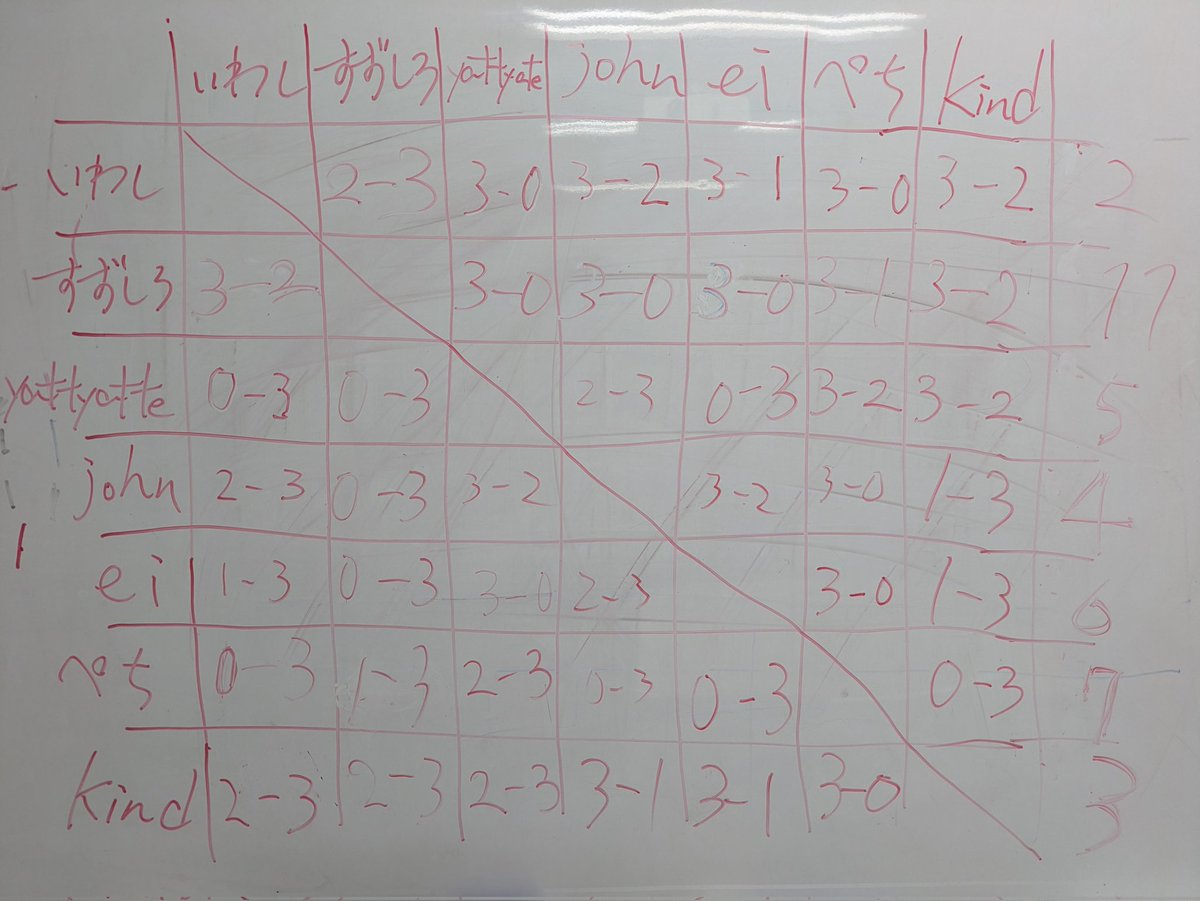 いわし すずしろ yattyatte john ei ぺち kind
いわし 2-3 3-0 3-2 3-1 3-0 3-2 2
すずしろ 3-2 3-0 3-0 3-0 3-1 3-2
yattyatte 0-3 0-3 2-3 0-3 3-2 3-2 5
john 2-3 0-3 3-2 3-2 3-0 1-3 4
ei 1-3 0-3 3-0 2-3 3-0 1-3 6
ぺち 0-3 1-3 2-3 0-3 0-3 0-3 7
kind 2-3 2-3 2-3 3-1 3-1 3-0 3